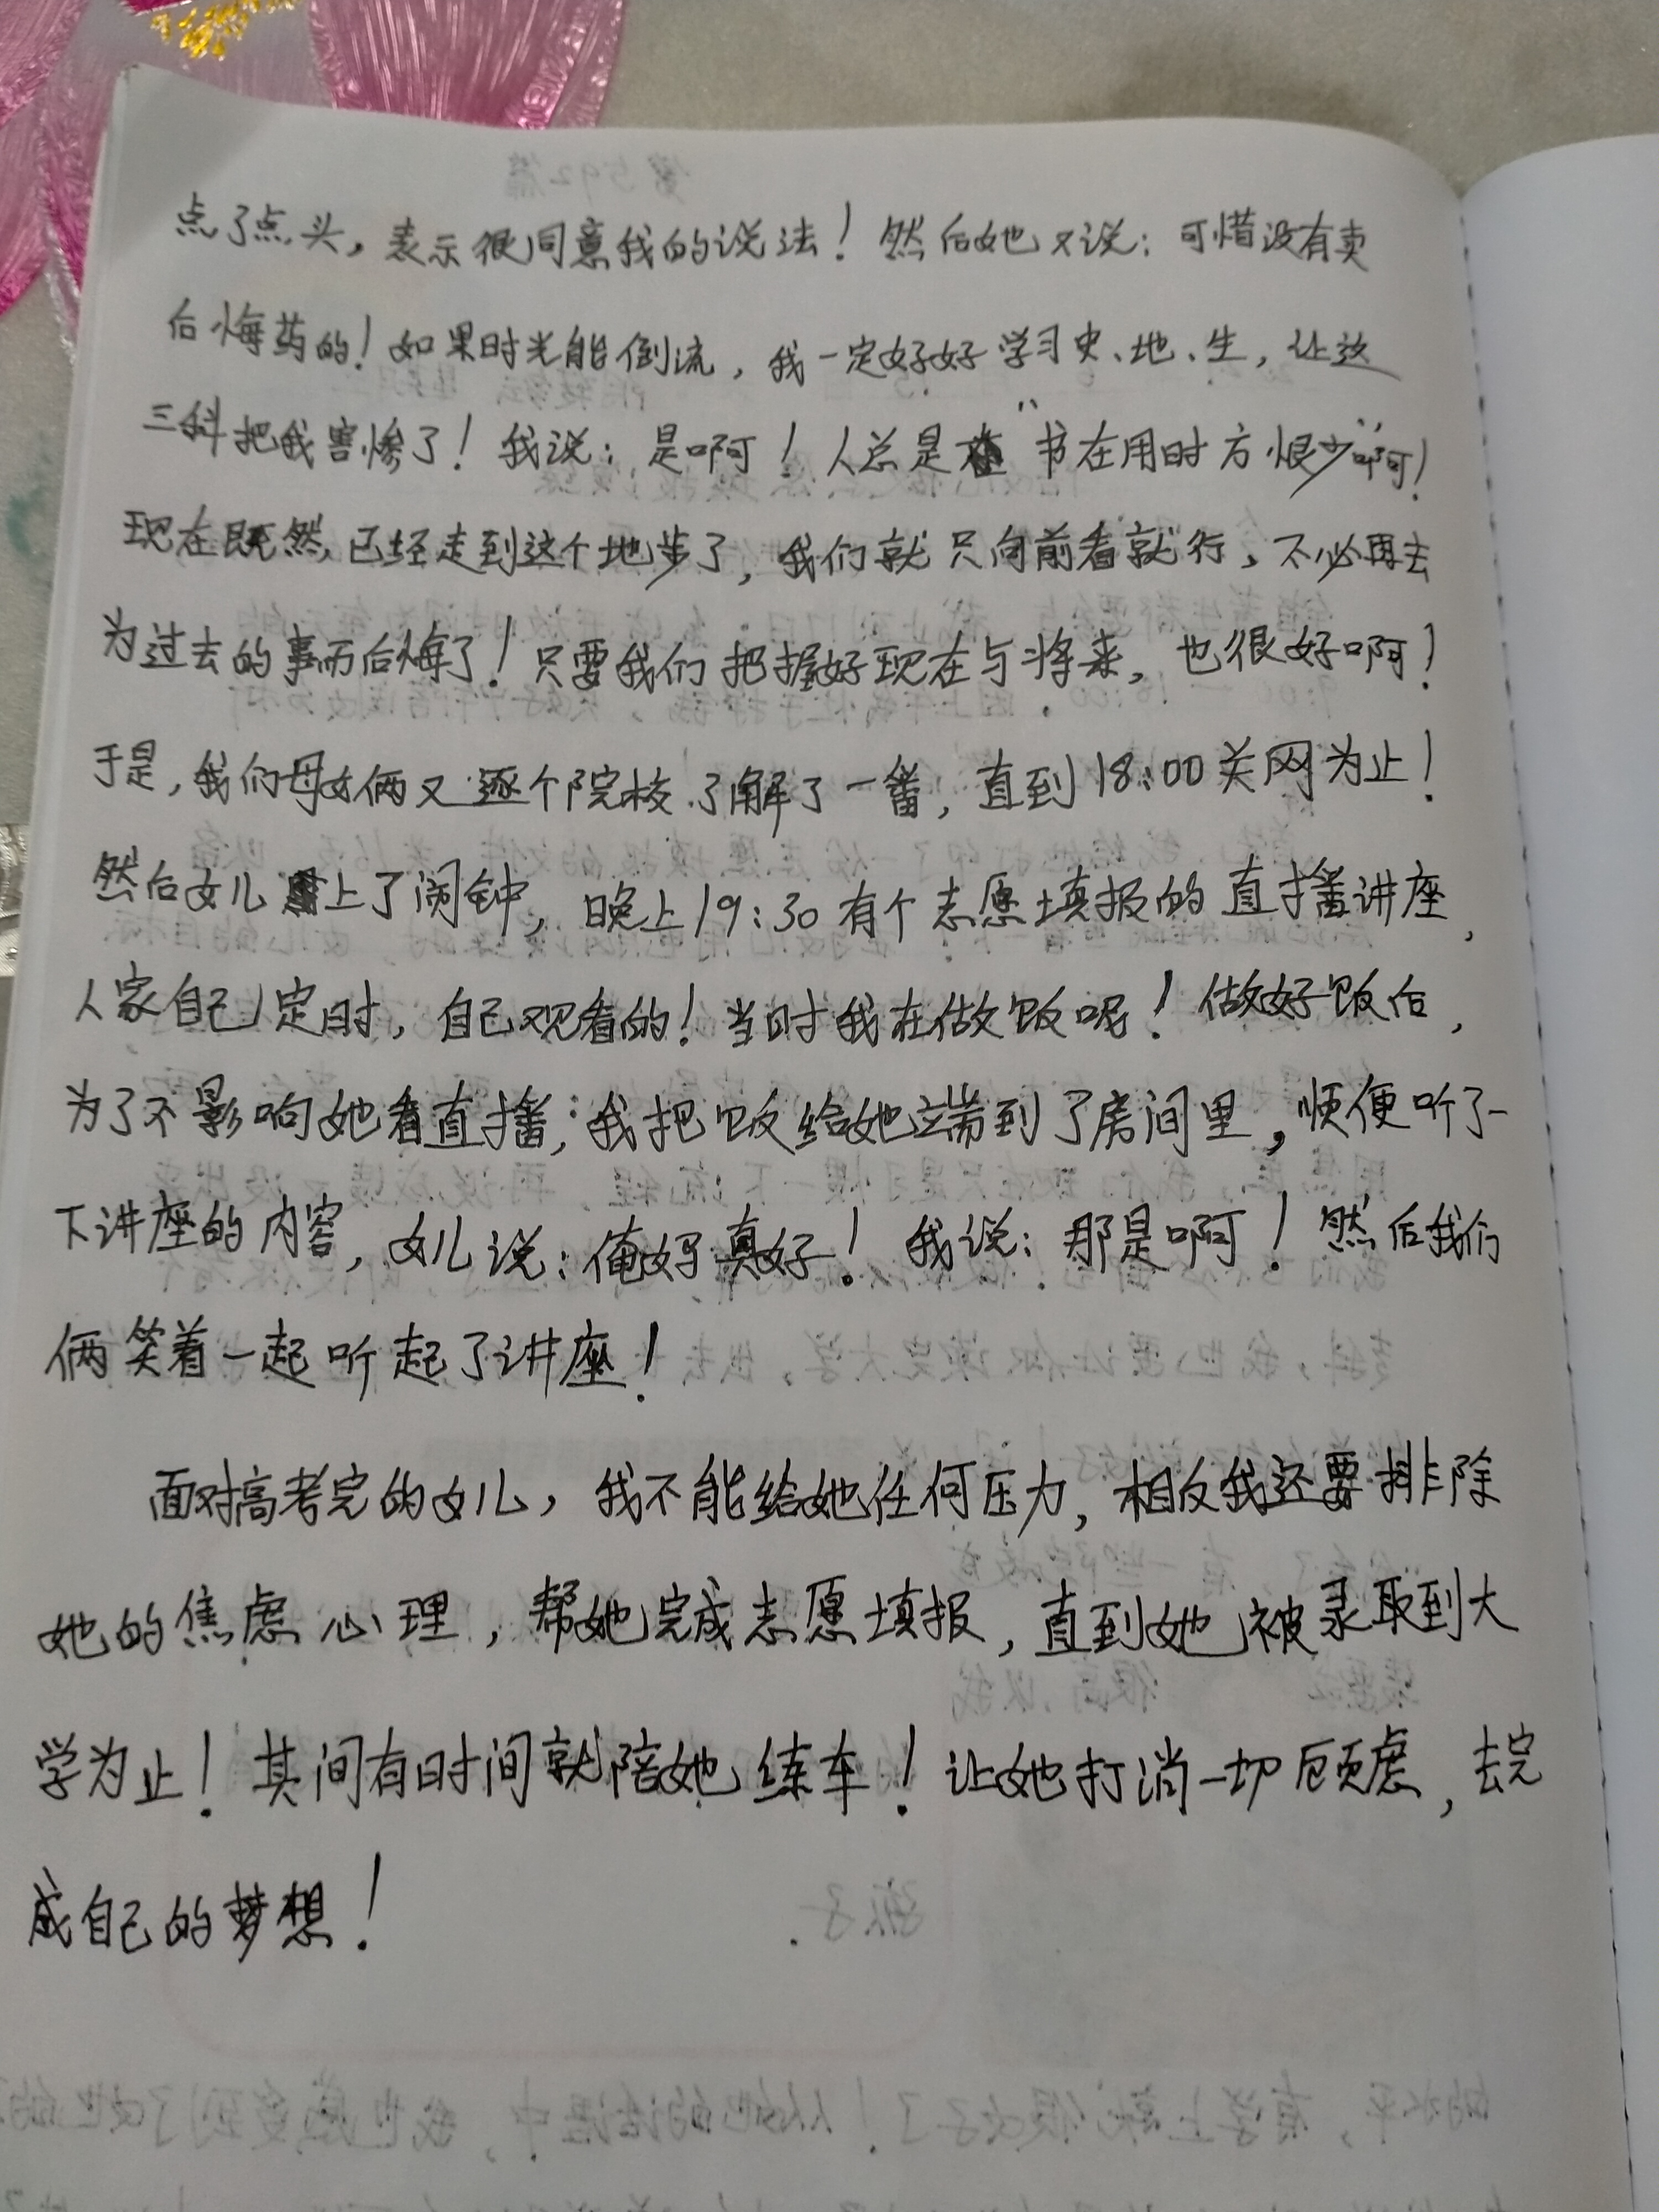 点了点头，表示很同意我的说法！然后她又说：可惜没有卖
后悔药的！如果时光能倒流，我一定好好学习史、地、生，让这
三科把我害惨了！我说：是啊！人总是“书在用时方恨少”啊！
现在既然已经走到这个地步了，我们就只向前看就行，不必再去
为过去的事而后悔了！只要我们把握好现在与将来，也很好啊！
于是，我们母女俩又逐个院校了解了一番，直到18:00关网为止！
然后女儿上了闹钟，晚上19:30有个志愿填报的直播讲座，
人家自己定时，自己观看的！当时我在做饭呢！做好饭后，
为了不影响她看直播；我把饭给她端到了房间里，顺便听了一
下讲座的内容，女儿说：俺妈真好！我说：那是啊！然后我们
俩笑着一起听起了讲座！
面对高考完的女儿，我不能给她任何压力，相反我还要排除
她的焦虑心理，帮她完成志愿填报，直到她被录取到大
学为止！其间有时间就陪她练车！让她打消一切顾虑，去完
成自己的梦想！